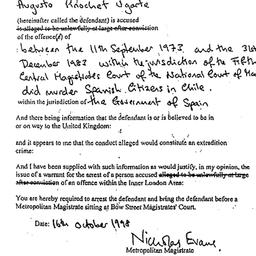 Augusto Pinochet Ugarte
(hereinafter called the defendant) is accused
is alleged to be unlawfully at large after conviction
of the offence(s) of
: between the 11th September 1973 and the 31st
December 1983 within the jurisdiction of the Fifth
Central Magistrates Court of the National Court of
did murder Spanish Citizens in Chile.
within the jurisdiction of the Government of Spain
And there being information that the defendant is or is believed to be in
or on way to the United Kingdom:
and it appears to me that the conduct alleged would constitute an extradition
crime:
And I have been supplied with such information as would justify, in my opinion, the
issue of a warrant for the arrest of a person accused alleged to be unlawfully at large
after conviction of an offence within the Inner London Area:
You are hereby required to arrest the defendant and bring the defendant before a
Metropolitan Magistrate sitting at Bow Street Magistrates' Court.
Date: 16th October 1998
Nicholas Evans.
Metropolitan Magistrate